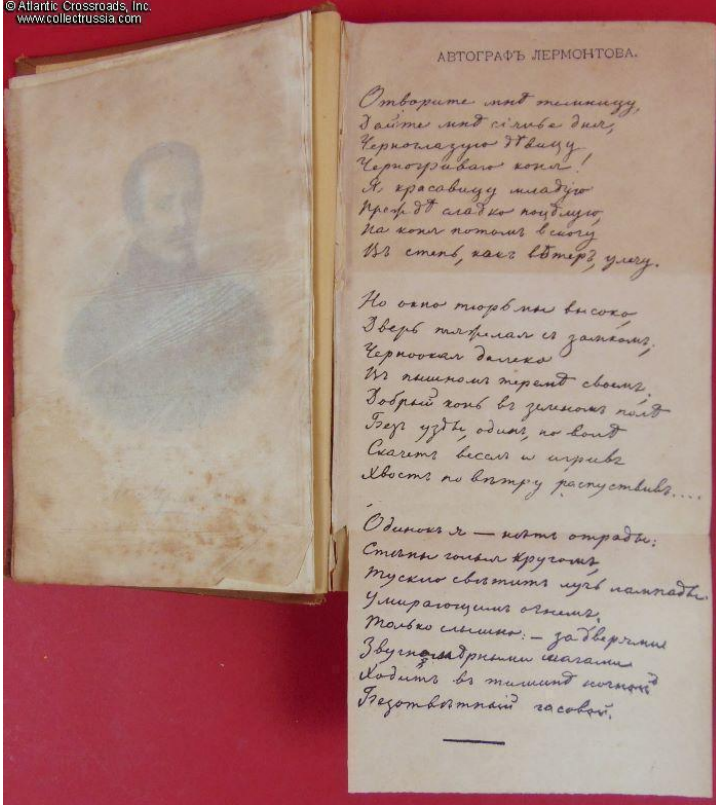 © Atlantic Crossroads, Inc.
www.collectrussia.com
АВТОГРАФЪ ЛЕРМОНТОВА.
Отворите мнѣ темницу,
Дайте мнѣ сіянье дня,
Черноглазую дѣвицу
Черногриваго коня!
Я красавицу младую
Прежде сладко поцѣлую,
На коня потомъ вскочу
Въ степь, какъ вѣтеръ, улечу.
Но окно тюрьмы высоко,
Дверь тяжелая съ замкомъ;
Черноокая далеко
Въ пышномъ теремѣ своемъ;
Добрый конь въ зеленомъ полѣ
Безъ узды, одинъ, по волѣ
Скачетъ веселъ и игривъ
Хвостъ по вѣтру распустивъ....
Одинокъ я — нѣтъ отрады:
Стѣны голыя кругомъ,
Тускло свѣтитъ лучъ лампады
Умирающимъ огнемъ.
Только слышно: — за дверями
Звучномѣрными шагами
Ходитъ въ тишинѣ ночной
Безотвѣтный часовой.